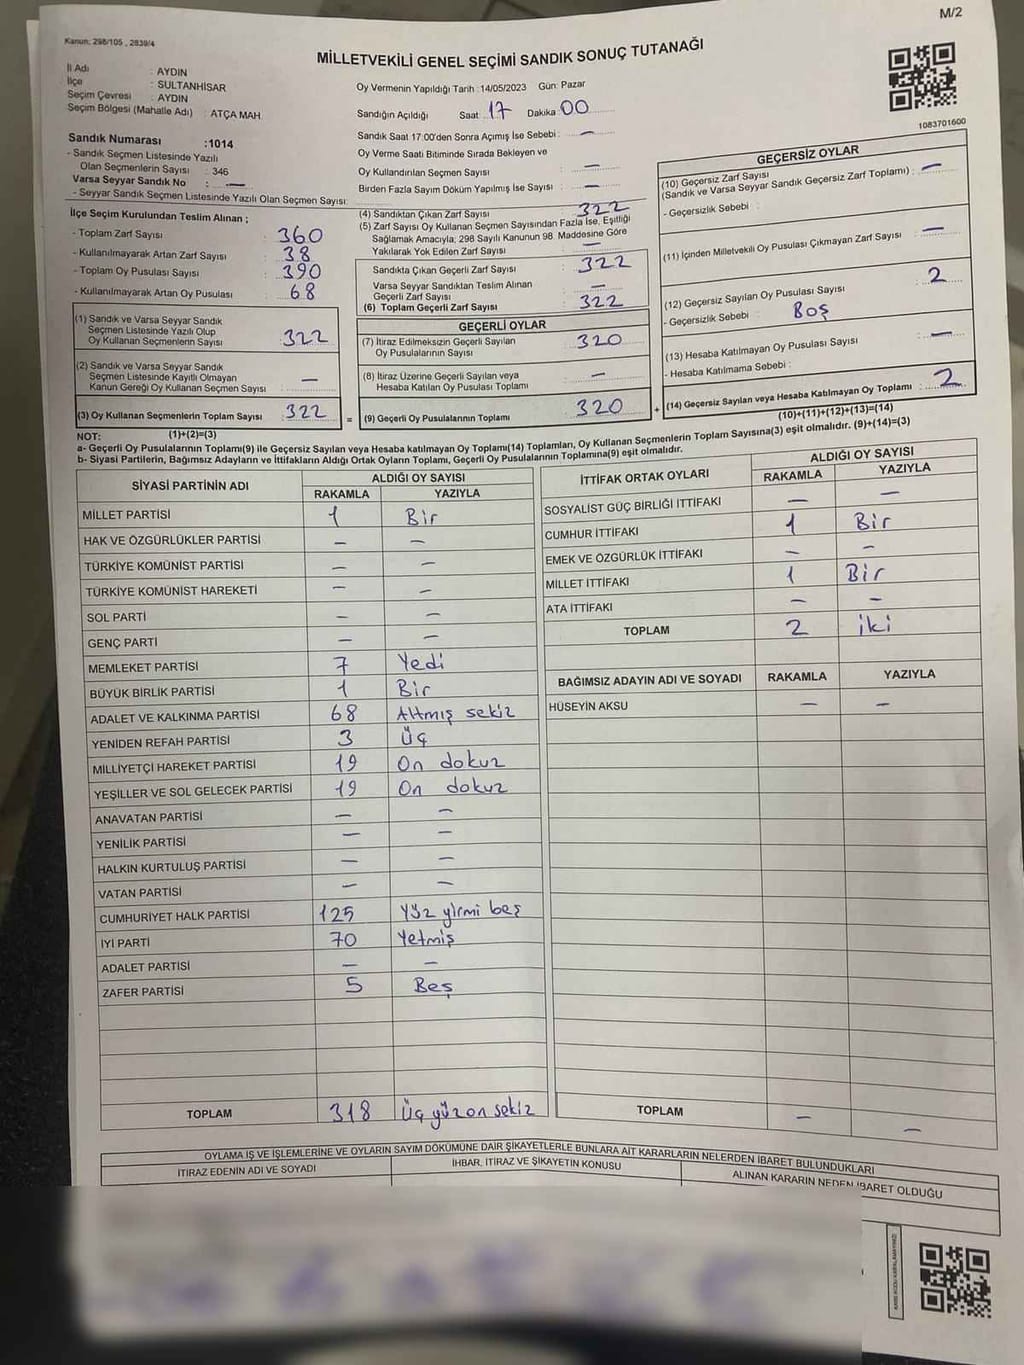 M/2
Kanun: 298/105 , 2839/4
MİLLETVEKİLİ GENEL SEÇİMİ SANDIK SONUÇ TUTANAĞI
İl Adı : AYDIN
İlçe : SULTANHİSAR
Seçim Çevresi : AYDIN
Seçim Bölgesi (Mahalle Adı) : ATÇA MAH.
Sandık Numarası :1014
- Sandık Seçmen Listesinde Yazılı
Olan Seçmenlerin Sayısı : 346
Varsa Seyyar Sandık No : —
- Seyyar Sandık Seçmen Listesinde Yazılı Olan Seçmen Sayısı:
Oy Vermenin Yapıldığı Tarih :14/05/2023 Gün: Pazar
Sandığın Açıldığı Saat 17 Dakika 00
Sandık Saat 17:00'den Sonra Açımış İse Sebebi : —
Oy Verme Saati Bitiminde Sırada Bekleyen ve
Oy Kullandırılan Seçmen Sayısı : —
Birden Fazla Sayım Döküm Yapılmış İse Sayısı : —
1083701600
İlçe Seçim Kurulundan Teslim Alınan ;
- Toplam Zarf Sayısı : 360
- Kullanılmayarak Artan Zarf Sayısı : 38
- Toplam Oy Pusulası Sayısı : 390
- Kullanılmayarak Artan Oy Pusulası : 68
(1) Sandık ve Varsa Seyyar Sandık
Seçmen Listesinde Yazılı Olup
Oy Kullanan Seçmenlerin Sayısı : 322
(2) Sandık ve Varsa Seyyar Sandık
Seçmen Listesinde Kayıtlı Olmayan
Kanun Gereği Oy Kullanan Seçmen Sayısı : —
(3) Oy Kullanan Seçmenlerin Toplam Sayısı : 322
(1)+(2)=(3)
(4) Sandıktan Çıkan Zarf Sayısı : 322
(5) Zarf Sayısı Oy Kullanan Seçmen Sayısından Fazla İse, Eşitliği
Sağlamak Amacıyla; 298 Sayılı Kanunun 98. Maddesine Göre
Yakılarak Yok Edilen Zarf Sayısı : —
Sandıkta Çıkan Geçerli Zarf Sayısı : 322
Varsa Seyyar Sandıktan Teslim Alınan
Geçerli Zarf Sayısı : —
(6) Toplam Geçerli Zarf Sayısı : 322
GEÇERLİ OYLAR
(7) İtiraz Edilmeksizin Geçerli Sayılan
Oy Pusulalarının Sayısı : 320
(8) İtiraz Üzerine Geçerli Sayılan veya
Hesaba Katılan Oy Pusulası Toplamı : —
= (9) Geçerli Oy Pusulalarının Toplamı : 320 +
GEÇERSİZ OYLAR
(10) Geçersiz Zarf Sayısı
(Sandık ve Varsa Seyyar Sandık Geçersiz Zarf Toplamı) : —
- Geçersizlik Sebebi :
(11) İçinden Milletvekili Oy Pusulası Çıkmayan Zarf Sayısı : —
(12) Geçersiz Sayılan Oy Pusulası Sayısı : 2
- Geçersizlik Sebebi : Boş
(13) Hesaba Katılmayan Oy Pusulası Sayısı : —
- Hesaba Katılmama Sebebi :
(14) Geçersiz Sayılan veya Hesaba Katılmayan Oy Toplamı : 2
(10)+(11)+(12)+(13)=(14)
NOT:
a- Geçerli Oy Pusulalarının Toplamı(9) ile Geçersiz Sayılan veya Hesaba katılmayan Oy Toplamı(14) Toplamları, Oy Kullanan Seçmenlerin Toplam Sayısına(3) eşit olmalıdır. (9)+(14)=(3)
b- Siyasi Partilerin, Bağımsız Adayların ve İttifakların Aldığı Ortak Oyların Toplamı, Geçerli Oy Pusulalarının Toplamına(9) eşit olmalıdır.
SİYASİ PARTİNİN ADI ALDIĞI OY SAYISI
RAKAMLA YAZIYLA
MİLLET PARTİSİ 1 Bir
HAK VE ÖZGÜRLÜKLER PARTİSİ — —
TÜRKİYE KOMÜNİST PARTİSİ — —
TÜRKİYE KOMÜNİST HAREKETİ — —
SOL PARTİ — —
GENÇ PARTİ — —
MEMLEKET PARTİSİ 7 Yedi
BÜYÜK BİRLİK PARTİSİ 1 Bir
ADALET VE KALKINMA PARTİSİ 68 Altmış sekiz
YENİDEN REFAH PARTİSİ 3 Üç
MİLLİYETÇİ HAREKET PARTİSİ 19 On dokuz
YEŞİLLER VE SOL GELECEK PARTİSİ 19 On dokuz
ANAVATAN PARTİSİ — —
YENİLİK PARTİSİ — —
HALKIN KURTULUŞ PARTİSİ — —
VATAN PARTİSİ — —
CUMHURİYET HALK PARTİSİ 125 Yüz yirmi beş
İYİ PARTİ 70 Yetmiş
ADALET PARTİSİ — —
ZAFER PARTİSİ 5 Beş
TOPLAM 318 Üç yüz on sekiz
İTTİFAK ORTAK OYLARI ALDIĞI OY SAYISI
RAKAMLA YAZIYLA
SOSYALİST GÜÇ BİRLİĞİ İTTİFAKI — —
CUMHUR İTTİFAKI 1 Bir
EMEK VE ÖZGÜRLÜK İTTİFAKI — —
MİLLET İTTİFAKI 1 Bir
ATA İTTİFAKI — —
TOPLAM 2 iki
BAĞIMSIZ ADAYIN ADI VE SOYADI RAKAMLA YAZIYLA
HÜSEYİN AKSU — —
TOPLAM — —
OYLAMA İŞ VE İŞLEMLERİNE VE OYLARIN SAYIM DÖKÜMÜNE DAİR ŞİKAYETLERLE BUNLARA AİT KARARLARIN NELERDEN İBARET BULUNDUKLARI
İTİRAZ EDENİN ADI VE SOYADI İHBAR, İTİRAZ VE ŞİKAYETİN KONUSU ALINAN KARARIN NEDEN İBARET OLDUĞU